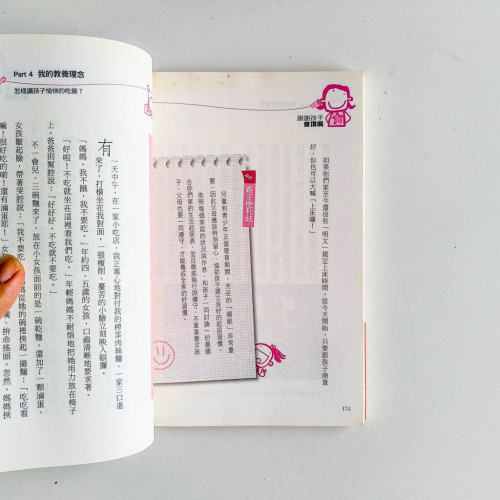 謝謝孩子
會頂嘴
如果你們家至今還沒有「明文」規定上床時間，從今天開始，只要跟孩子商量
好，你也可以大喊「上床囉！」
親子便利貼
兒童和青少年正值發育期間，充足的「睡眠」非常重
要，因此父母應該特別留心，協助孩子建立良好的起居習慣。
依照每個家庭的狀況與作息，和孩子一同討論一份最適
合你們家的生活起居表，並且徹底執行與遵守，不單單要求孩
子，父母也要一同遵守，才能養成全家的好習慣。
174
Part 4 我的教養理念
怎樣讓孩子愉快的吃飯？
有一天中午，在一家小吃店，我正專心地對付我的榨菜肉絲麵，一家三口進
來了，打橫坐在我對面，一張瘦削、憂苦的小臉立刻映入眼簾。
「媽媽，我不餓，我不要吃。」年約四、五歲的女孩，口齒清晰地要求著。
「好啦！不吃就坐在這裡看我們吃。」年輕媽媽不耐煩地把她用力放在椅子
上。爸爸則幫腔說：「好好好，不吃就不要吃。」
不一會兒，三碗麵來了，放在小女孩面前的是一碗乾麵，還加了一顆滷蛋。
女孩皺起臉，帶著哭腔說：「我不要吃
媽從她的碗裡挾起一撮麵：「吃吃看
嘛！很好吃的喲！還有滷蛋耶！」女
，拚命搖頭。忽然，媽媽挾